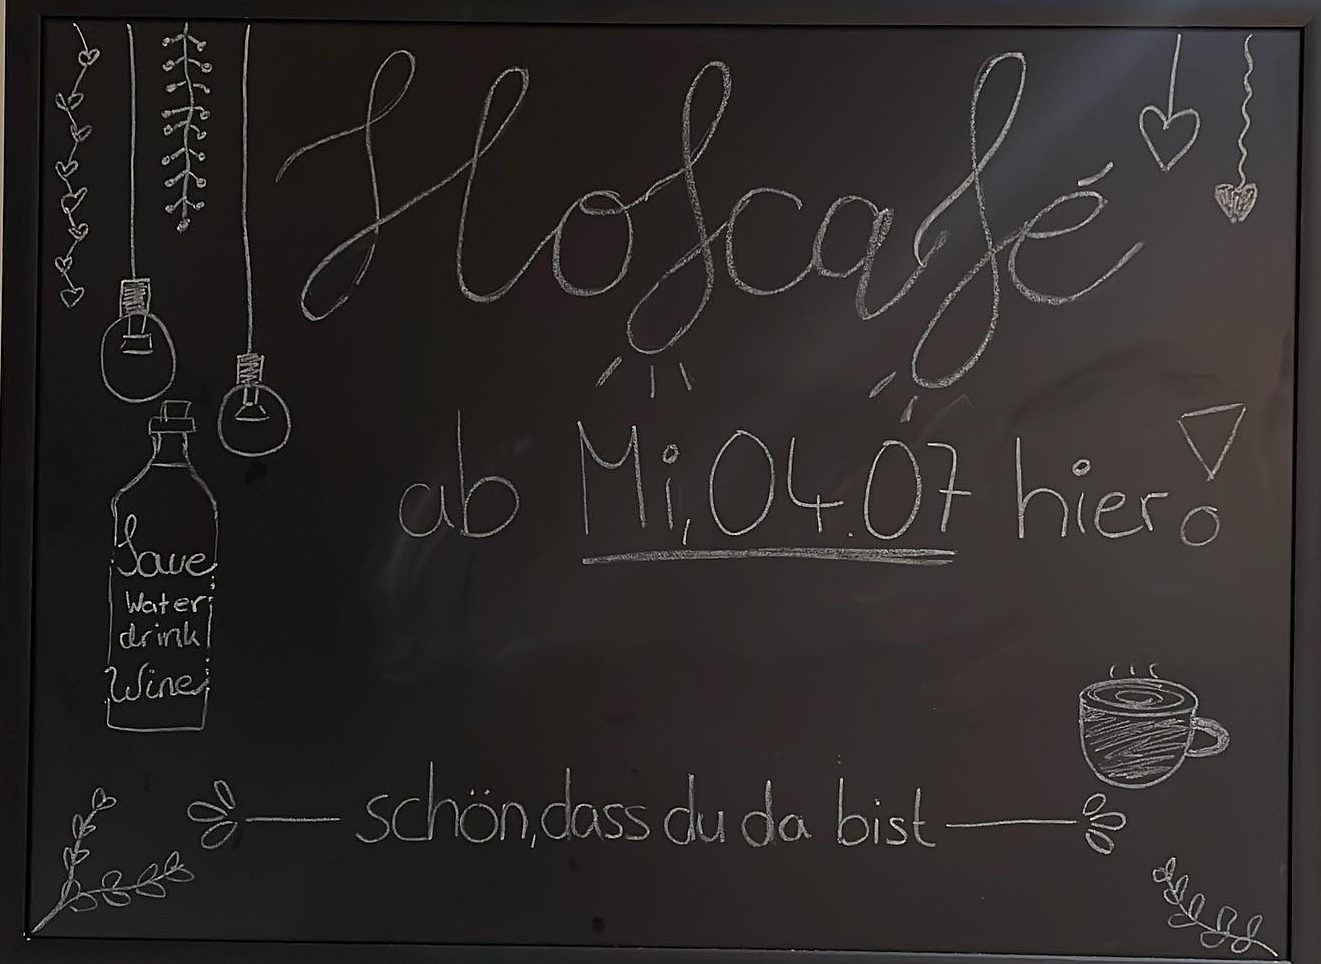 Hofcafé
ab Mi, 04.07 hier!
Save
Water
drink
Wine
schön, dass du da bist